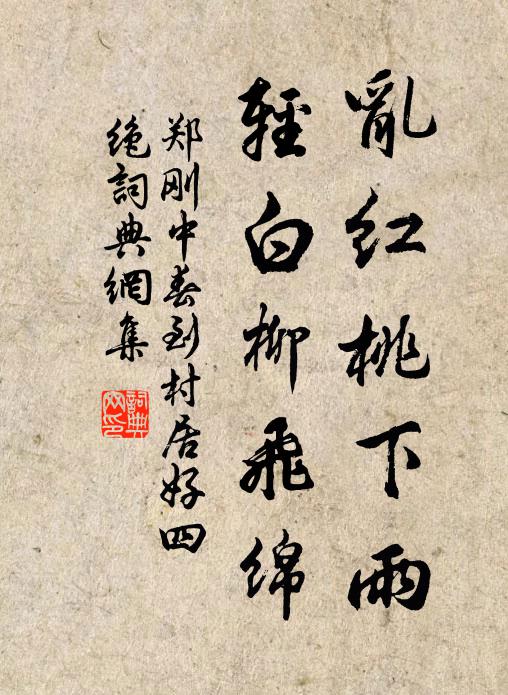 亂红桃下雨
輕白柳飛綿
郑刚中春到村居好四
绝詞典網集
詞典
网印